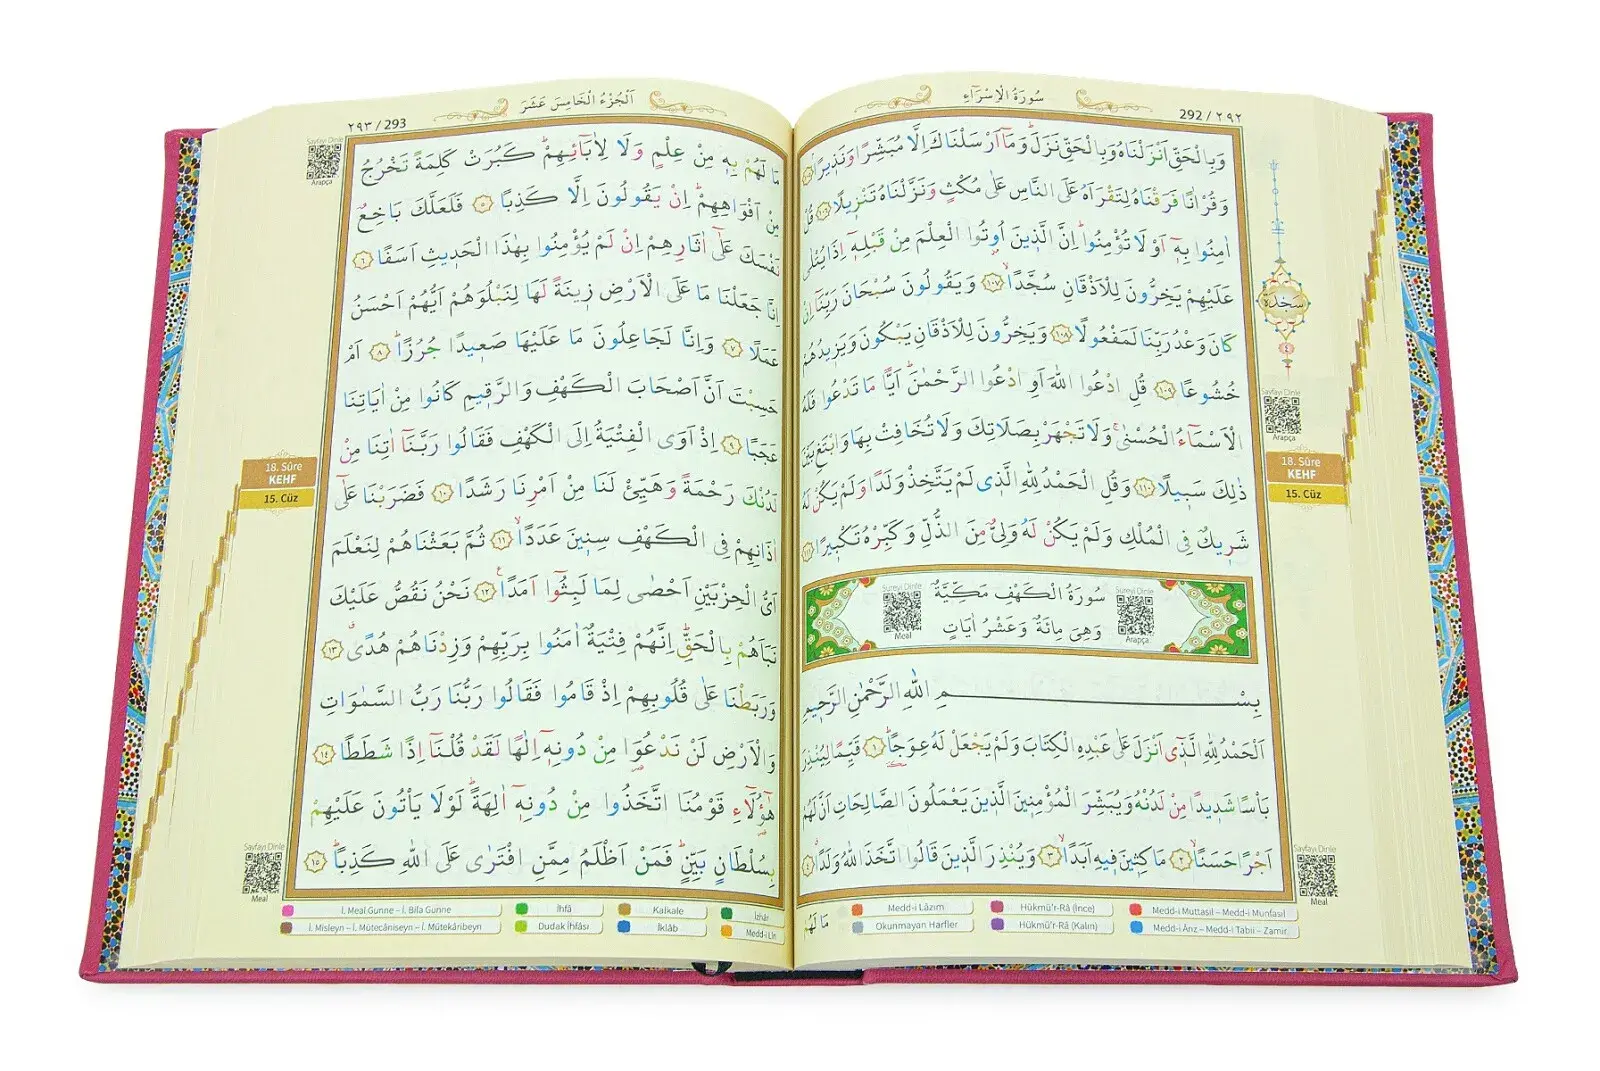 سُورَةُ الْاِسْرَٓاءِ
292 / ٢٩٢
وَبِالْحَقِّ اَنْزَلْنَاهُ وَبِالْحَقِّ نَزَلَۜ وَمَٓا اَرْسَلْنَاكَ اِلَّا مُبَشِّرًا وَنَذِيرًاۢ
وَقُرْاٰنًا فَرَقْنَاهُ لِتَقْرَاَهُ عَلَى النَّاسِ عَلٰى مُكْثٍ وَنَزَّلْنَاهُ تَنْزِيلًا ﴿١٠٦﴾ قُلْ
اٰمِنُوا بِهٖٓ اَوْ لَا تُؤْمِنُواۜ اِنَّ الَّذٖينَ اُوتُوا الْعِلْمَ مِنْ قَبْلِهٖٓ اِذَا يُتْلٰى
عَلَيْهِمْ يَخِرُّونَ لِلْاَذْقَانِ سُجَّدًاۙ ﴿١٠٧﴾ وَيَقُولُونَ سُبْحَانَ رَبِّنَٓا اِنْ
كَانَ وَعْدُ رَبِّنَا لَمَفْعُولًا ﴿١٠٨﴾ وَيَخِرُّونَ لِلْاَذْقَانِ يَبْكُونَ وَيَزٖيدُهُمْ
خُشُوعًا ﴿١٠٩﴾ قُلِ ادْعُوا اللّٰهَ اَوِ ادْعُوا الرَّحْمٰنَۜ اَيًّا مَا تَدْعُوا فَلَهُ
الْاَسْمَٓاءُ الْحُسْنٰىۚ وَلَا تَجْهَرْ بِصَلَاتِكَ وَلَا تُخَافِتْ بِهَا وَابْتَغِ بَيْنَ
ذٰلِكَ سَبٖيلًا ﴿١١٠﴾ وَقُلِ الْحَمْدُ لِلّٰهِ الَّذٖى لَمْ يَتَّخِذْ وَلَدًا وَلَمْ يَكُنْ لَهُ
شَرٖيكٌ فِى الْمُلْكِ وَلَمْ يَكُنْ لَهُ وَلِىٌّ مِنَ الذُّلِّ وَكَبِّرْهُ تَكْبٖيرًا
سُورَةُ الْكَهْفِ مَكِّيَّةٌ
وَهِىَ مِائَةٌ وَعَشْرُ اٰيَاتٍ
Sureyi Dinle
Meal
Sureyi Dinle
Arapça
بِسْمِ اللّٰهِ الرَّحْمٰنِ الرَّحٖيمِ
اَلْحَمْدُ لِلّٰهِ الَّذٖٓى اَنْزَلَ عَلٰى عَبْدِهِ الْكِتَابَ وَلَمْ يَجْعَلْ لَهُ عِوَجًاۜ ﴿١﴾ قَيِّمًا لِيُنْذِرَ
بَاْسًا شَدٖيدًا مِنْ لَدُنْهُ وَيُبَشِّرَ الْمُؤْمِنٖينَ الَّذٖينَ يَعْمَلُونَ الصَّالِحَاتِ اَنَّ لَهُمْ
اَجْرًا حَسَنًاۙ ﴿٢﴾ مَاكِثٖينَ فٖيهِ اَبَدًاۙ ﴿٣﴾ وَيُنْذِرَ الَّذٖينَ قَالُوا اتَّخَذَ اللّٰهُ وَلَدًاۗ ﴿٤﴾
مَا لَهُمْ
سَجْدَة
٤
Sayfayı Dinle
Arapça
18. Sûre
KEHF
15. Cüz
Sayfayı Dinle
Meal
Medd-i Lâzım
Hükmü'r-Râ (İnce)
Medd-i Muttasıl – Medd-i Munfasıl
Okunmayan Harfler
Hükmü'r-Râ (Kalın)
Medd-i Ârız – Medd-i Tabii – Zamir
اَلْجُزْءُ الْخَامِسَ عَشَرَ
٢٩٣ / 293
مَا لَهُمْ بِهٖ مِنْ عِلْمٍ وَلَا لِاٰبَٓائِهِمْۜ كَبُرَتْ كَلِمَةً تَخْرُجُ
مِنْ اَفْوَاهِهِمْۜ اِنْ يَقُولُونَ اِلَّا كَذِبًا ﴿٥﴾ فَلَعَلَّكَ بَاخِعٌ
نَفْسَكَ عَلٰٓى اٰثَارِهِمْ اِنْ لَمْ يُؤْمِنُوا بِهٰذَا الْحَدٖيثِ اَسَفًا ﴿٦﴾
اِنَّا جَعَلْنَا مَا عَلَى الْاَرْضِ زٖينَةً لَهَا لِنَبْلُوَهُمْ اَيُّهُمْ اَحْسَنُ
عَمَلًا ﴿٧﴾ وَاِنَّا لَجَاعِلُونَ مَا عَلَيْهَا صَعٖيدًا جُرُزًاۜ ﴿٨﴾ اَمْ
حَسِبْتَ اَنَّ اَصْحَابَ الْكَهْفِ وَالرَّقٖيمِ كَانُوا مِنْ اٰيَاتِنَا
عَجَبًا ﴿٩﴾ اِذْ اَوَى الْفِتْيَةُ اِلَى الْكَهْفِ فَقَالُوا رَبَّنَٓا اٰتِنَا مِنْ
لَدُنْكَ رَحْمَةً وَهَيِّئْ لَنَا مِنْ اَمْرِنَا رَشَدًا ﴿١٠﴾ فَضَرَبْنَا عَلٰٓى
اٰذَانِهِمْ فِى الْكَهْفِ سِنٖينَ عَدَدًاۙ ﴿١١﴾ ثُمَّ بَعَثْنَاهُمْ لِنَعْلَمَ
اَىُّ الْحِزْبَيْنِ اَحْصٰى لِمَا لَبِثُٓوا اَمَدًاۚ ﴿١٢﴾ نَحْنُ نَقُصُّ عَلَيْكَ
نَبَاَهُمْ بِالْحَقِّۜ اِنَّهُمْ فِتْيَةٌ اٰمَنُوا بِرَبِّهِمْ وَزِدْنَاهُمْ هُدًىۗ ﴿١٣﴾
وَرَبَطْنَا عَلٰى قُلُوبِهِمْ اِذْ قَامُوا فَقَالُوا رَبُّنَا رَبُّ السَّمٰوَاتِ
وَالْاَرْضِ لَنْ نَدْعُوَ۬ا مِنْ دُونِهٖٓ اِلٰهًا لَقَدْ قُلْنَٓا اِذًا شَطَطًا ﴿١٤﴾
هٰٓؤُ۬لَٓاءِ قَوْمُنَا اتَّخَذُوا مِنْ دُونِهٖٓ اٰلِهَةًۜ لَوْلَا يَاْتُونَ عَلَيْهِمْ
بِسُلْطَانٍ بَيِّنٍۜ فَمَنْ اَظْلَمُ مِمَّنِ افْتَرٰى عَلَى اللّٰهِ كَذِبًاۜ ﴿١٥﴾
Sayfayı Dinle
Arapça
18. Sûre
KEHF
15. Cüz
Sayfayı Dinle
Meal
İ. Meal Gunne – İ. Bila Gunne
İhfâ
Kalkale
İzhâr
İ. Misleyn – İ. Mütecaniseyn – İ. Mütekâribeyn
Dudak İhfâsı
İklâb
Medd-i Lîn